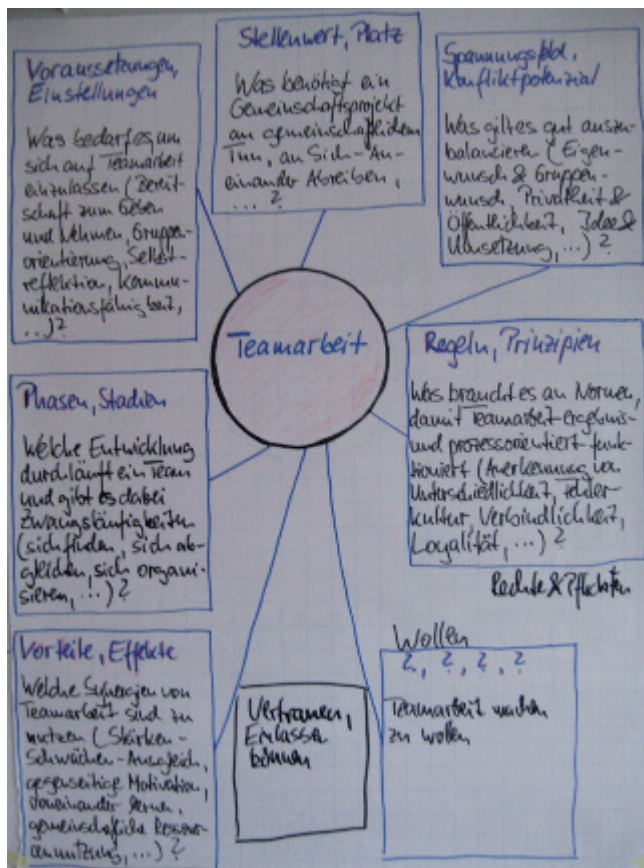 Voraussetzungen,
Einstellungen
Was bedarf es um
sich auf Teamarbeit
einzulassen (Bereit-
schaft zum Geben
und Nehmen, Gruppen-
orientierung, Selbst-
reflektion, Kommu-
nikationsfähigkeit,
...)?
Stellenwert, Platz
Was benötigt ein
Gemeinschaftsprojekt
an gemeinschaftlichem
Tun, an Sich-An-
einander Abreiben,
... ?
Spannungsfeld,
Konfliktpotenzial
Was gilt es gut auszu-
balancieren (Eigen-
wunsch & Gruppen-
wunsch, Privatheit &
Öffentlichkeit, Idee &
Umsetzung, ...) ?
Teamarbeit
Regeln, Prinzipien
Was braucht es an Normen,
damit Teamarbeit ergebnis-
und prozessorientiert funk-
tioniert (Anerkennung von
Unterschiedlichkeit, Fehler-
kultur, Verbindlichkeit,
Loyalität, ...) ?
Rechte & Pflichten
Phasen, Stadien
Welche Entwicklung
durchläuft ein Team
und gibt es dabei
Zwangsläufigkeiten
(sich finden, sich ab-
gleichen, sich organi-
sieren, ...) ?
Vorteile, Effekte
Welche Synergien von
Teamarbeit sind zu
nutzen (Stärken-
Schwächen-Ausgleich,
gegenseitige Motivation,
voneinander lernen,
gemeinschaftliche Ressour-
cennutzung, ...) ?
Vertrauen,
Einlassen
können
Wollen
?, ?, ?, ?
Teamarbeit machen
zu wollen